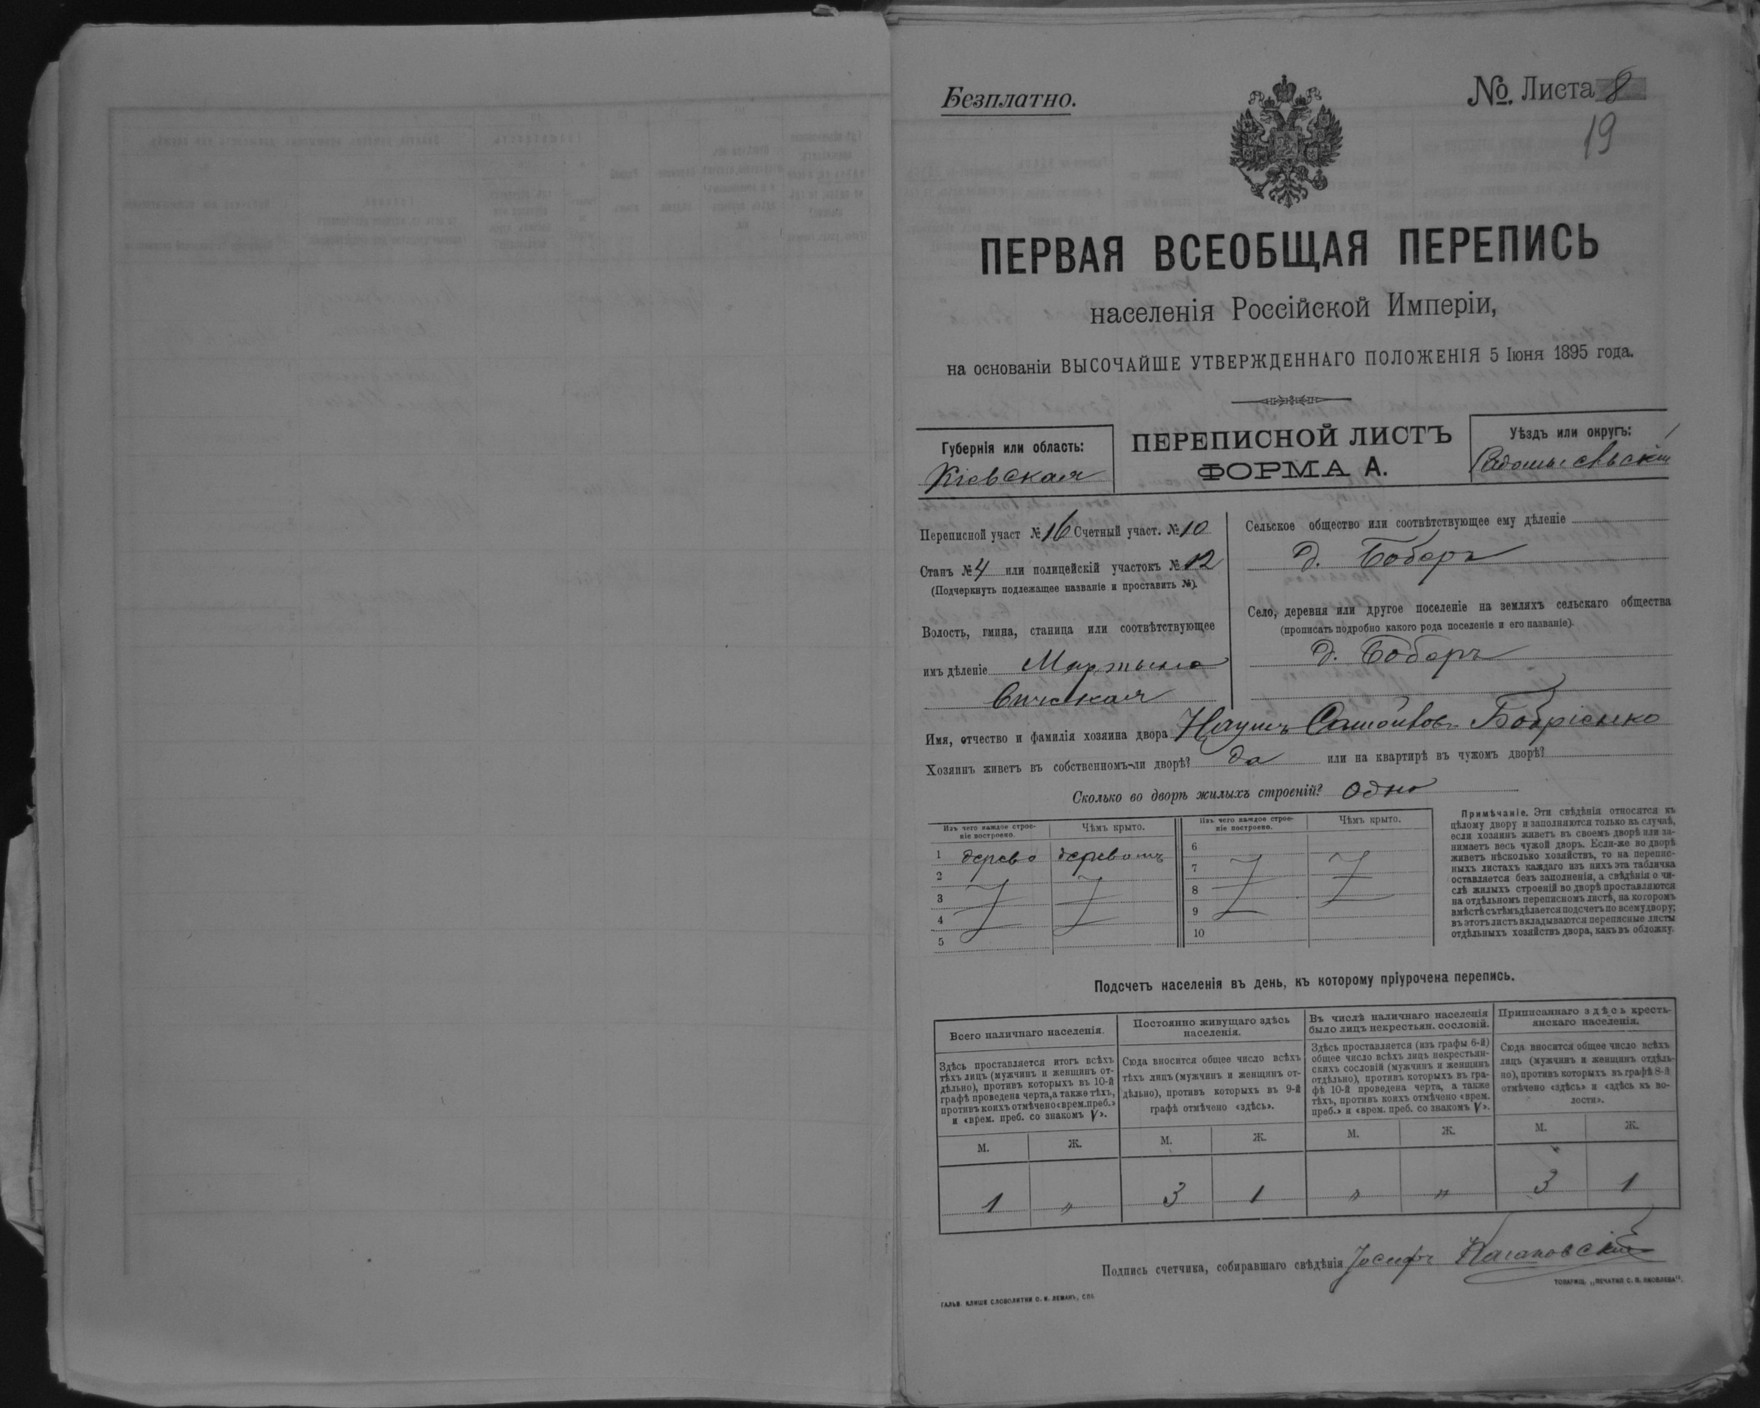 Безплатно.
№. Листа 8
19
ПЕРВАЯ ВСЕОБЩАЯ ПЕРЕПИСЬ
населенія Россійской Имперіи,
на основаніи ВЫСОЧАЙШЕ УТВЕРЖДЕННАГО ПОЛОЖЕНІЯ 5 Іюня 1895 года.
Губернія или область:
Кіевская
ПЕРЕПИСНОЙ ЛИСТЪ
ФОРМА А.
Уѣздъ или округъ:
Радомысльскій
Переписной участ № 16 Счетный участ. № 10
Станъ № 4 или полицейскій участокъ № 12
(Подчеркнуть подлежащее названіе и проставить №).
Волость, гмина, станица или соотвѣтствующее
имъ дѣленіе Мартыно
вичская
Сельское общество или соотвѣтствующее ему дѣленіе
д. Боберъ
Село, деревня или другое поселеніе на земляхъ сельскаго общества
(прописать подробно какого рода поселеніе и его названіе).
д. Боберъ
Имя, отчество и фамилія хозяина двора Наумъ Бобріенко
Хозяинъ живетъ въ собственномъ-ли дворѣ? да или на квартирѣ въ чужомъ дворѣ?
Сколько во дворѣ жилыхъ строеній? Одно
Изъ чего каждое строеніе построено.
Чѣмъ крыто.
Изъ чего каждое строеніе построено.
Чѣмъ крыто.
1 дерево деревомъ
2
3
4
5
6
7
8
9
10
Примѣчаніе. Эти свѣдѣнія относятся къ
цѣлому двору и заполняются только въ случаѣ,
если хозяинъ живетъ въ своемъ дворѣ или за-
нимаетъ весь чужой дворъ. Если-же во дворѣ
живетъ нѣсколько хозяйствъ, то на перепис-
ныхъ листахъ каждаго изъ нихъ эта табличка
оставляется безъ заполненія, а свѣдѣнія о чи-
слѣ жилыхъ строеній во дворѣ проставляются
на отдѣльномъ переписномъ листѣ, на которомъ
вмѣстѣ съ тѣмъ дѣлается подсчетъ по всему двору;
въ этотъ листъ вкладываются переписные листы
отдѣльныхъ хозяйствъ двора, какъ въ обложку.
Подсчетъ населенія въ день, къ которому пріурочена перепись.
Всего наличнаго населенія.
Здѣсь проставляется итогъ всѣхъ
тѣхъ лицъ (мужчинъ и женщинъ от-
дѣльно), противъ которыхъ въ 10-й
графѣ проведена черта, а также тѣхъ,
противъ коихъ отмѣчено «врем. преб.»
и «врем. преб. со знакомъ V».
Постоянно живущаго здѣсь
населенія.
Сюда вносится общее число всѣхъ
тѣхъ лицъ (мужчинъ и женщинъ от-
дѣльно), противъ которыхъ въ 9-й
графѣ отмѣчено «здѣсь».
Въ числѣ наличнаго населенія
было лицъ некрестьян. сословій.
Здѣсь проставляется (изъ графы 6-й)
общее число всѣхъ лицъ некрестьян-
скихъ сословій (мужчинъ и женщинъ
отдѣльно), противъ которыхъ въ гра-
фѣ 10-й проведена черта, а также
тѣхъ, противъ коихъ отмѣчено «врем.
преб.» и «врем. преб. со знакомъ V».
Приписаннаго здѣсь кресть-
янскаго населенія.
Сюда вносится общее число всѣхъ
лицъ (мужчинъ и женщинъ отдѣль-
но), противъ которыхъ въ графѣ 8-й
отмѣчено «здѣсь» и «здѣсь въ во-
лости».
М. Ж. М. Ж. М. Ж. М. Ж.
1 „ 3 1 „ „ 3 1
Подпись счетчика, собиравшаго свѣдѣнія Іосифъ
ГАЛЬВ. КЛИШЕ СЛОВОЛИТНИ О. И. ЛЕМАНЪ, СПБ.
ТОВАРИЩ. „ПЕЧАТНЯ С. П. ЯКОВЛЕВА".